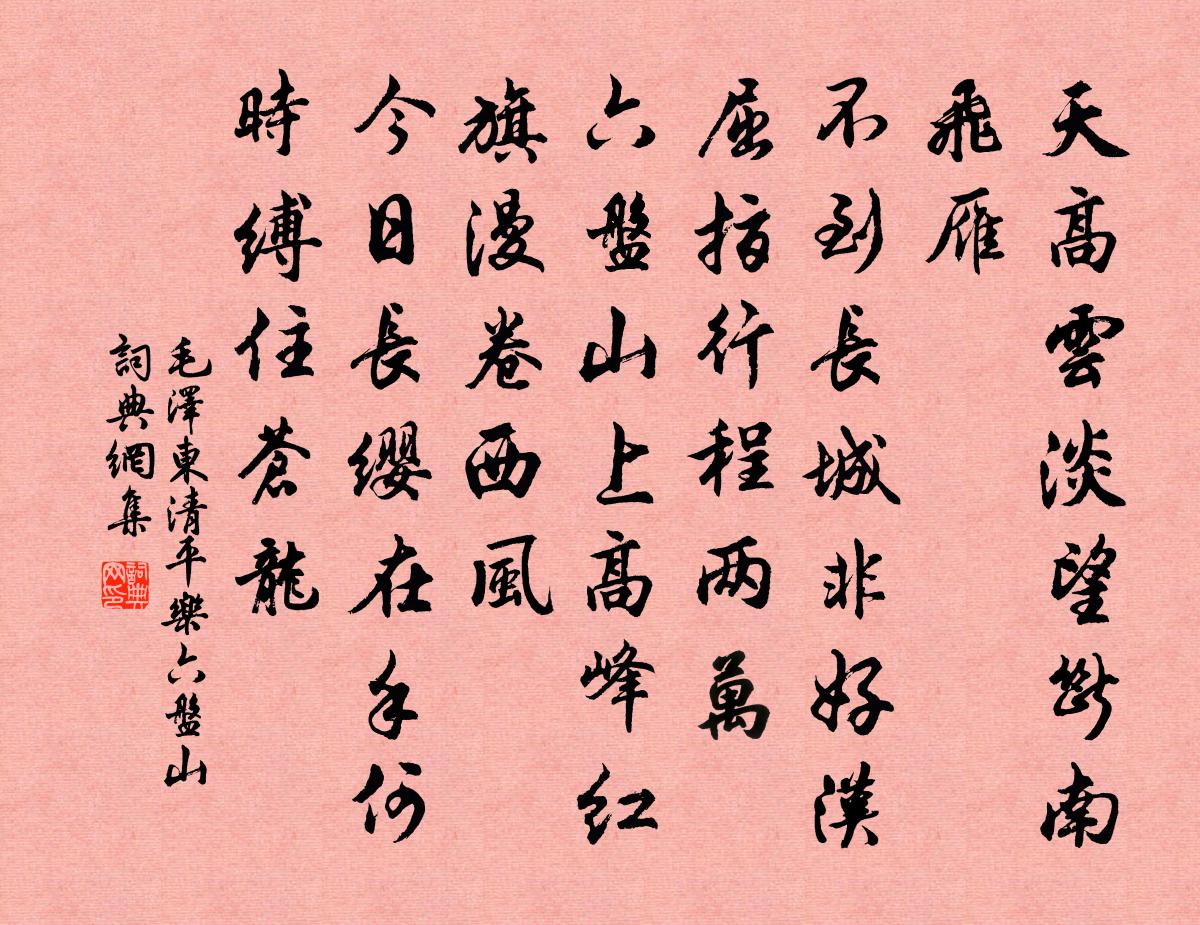 天高雲淡望斷南
飛雁
不到長城非好漢
屈指行程兩萬
六盤山上高峰紅
旗漫卷西風
今日長纓在手何
時縛住蒼龍
毛澤東清平樂六盤山
詞典網集
詞典网印